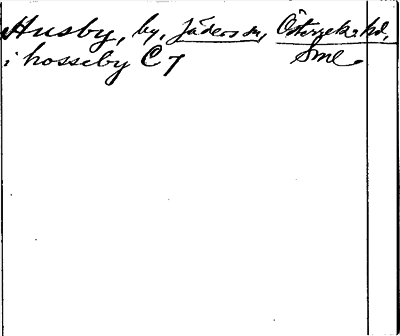 Husby, by, Jäders sn, Österrek. hd,
i hosseby C 7 Sml.